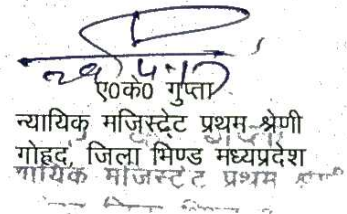 ए0के0 गुप्ता
न्यायिक मजिस्ट्रेट प्रथम श्रेणी
गोहद, जिला भिण्ड मध्यप्रदेश
न्यायिक मजिस्टेट प्रथम श्रेणी